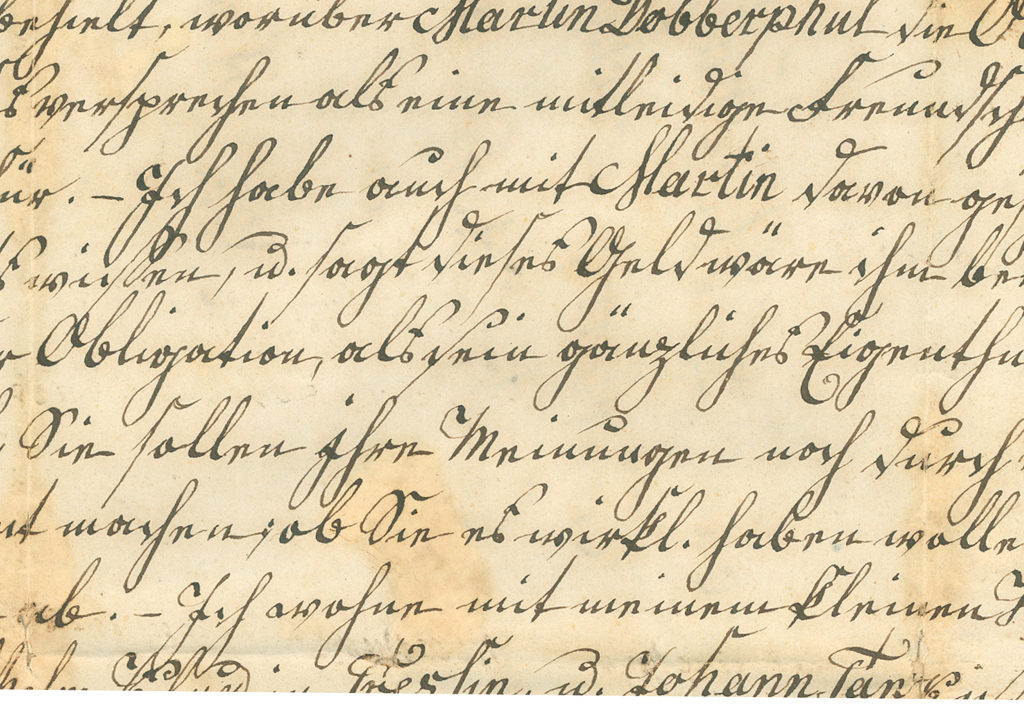 behielt, worüber Martin Dobberphul die
versprechen als eine mitleidige Freundsch
für. – Ich habe auch mit Martin davon ge
wissen, u. sagt dieses Geld wäre ihm bei
Obligation, als sein gänzliches Eigenthu
Sie sollen Ihre Meinungen noch durch
machen, ob Sie es wirkl. haben wolle
ab. – Ich wohne mit meinem kleinen
in u. Johann